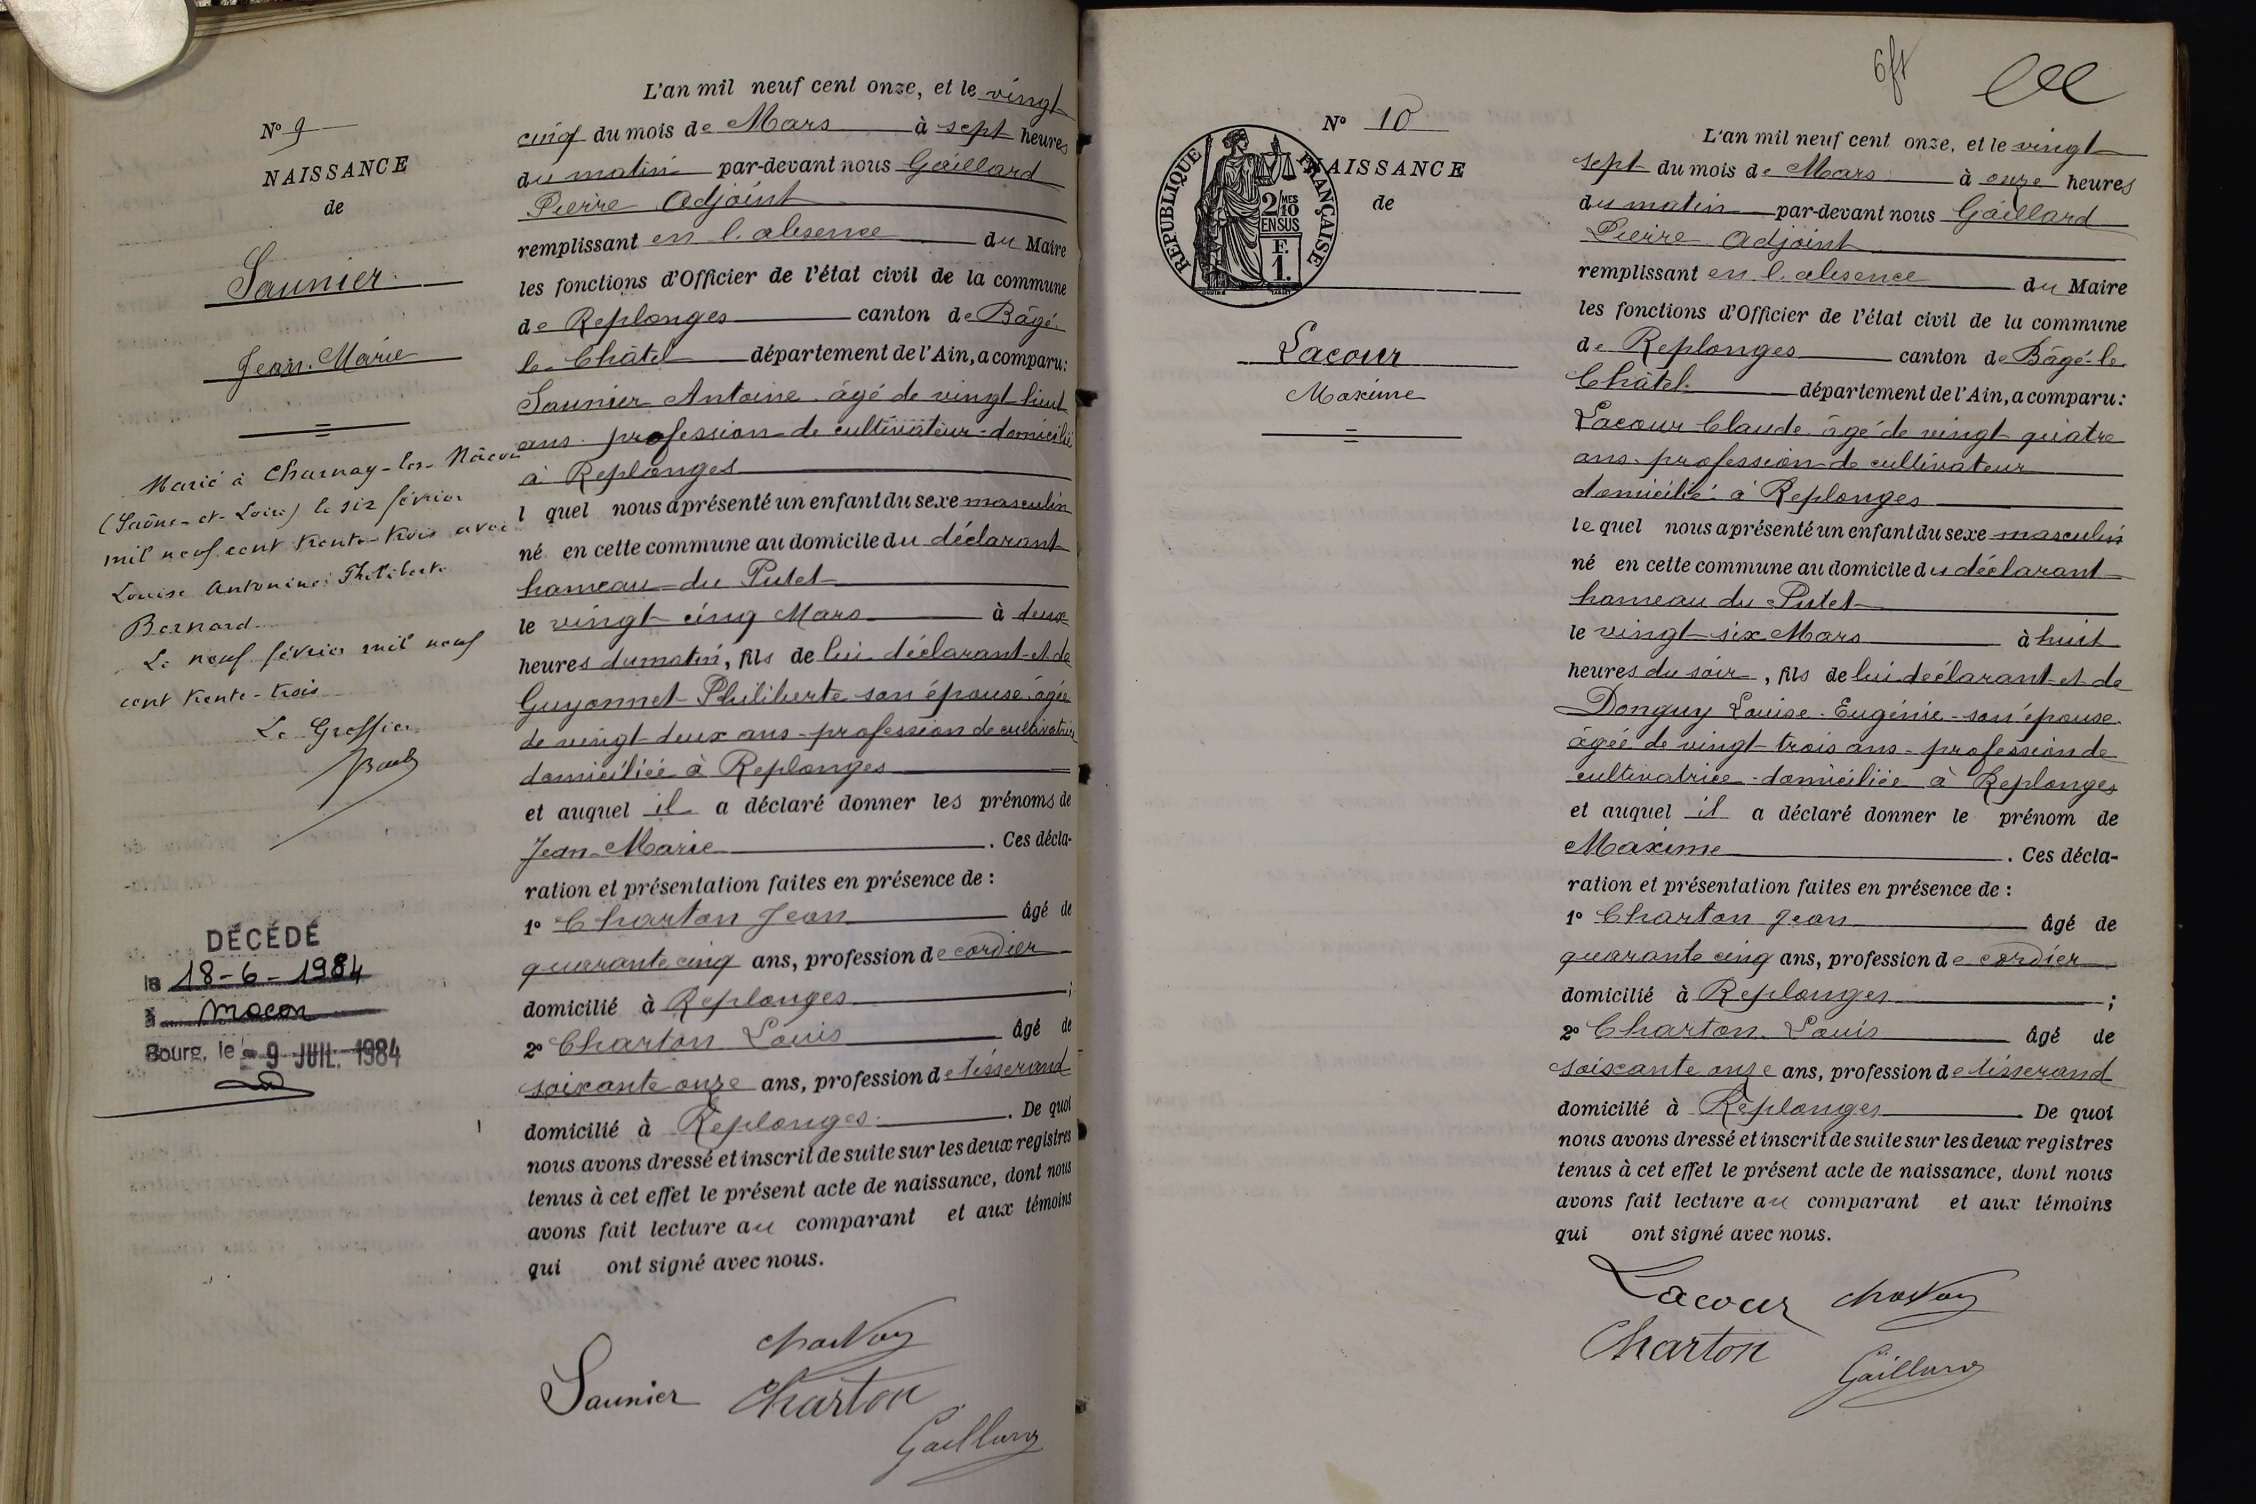 N° 9
NAISSANCE
de
Saunier
Jean-Marie
Marié à Charnay-les-Mâcon
(Saône-et-Loire) le six février
mil neuf cent trente-trois avec
Louise Antonine Philiberte
Bernard.
Le neuf février mil neuf
cent trente-trois
Le Greffier
DÉCÉDÉ
le 18-6-1984
à Macon
Bourg, le - 9 JUIL. 1984
L'an mil neuf cent onze, et le vingt
cinq du mois de Mars à sept heures
du matin par-devant nous Gaillard
Pierre Adjoint
remplissant en l'absence du Maire
les fonctions d'Officier de l'état civil de la commune
de Replonges canton de Bâgé
le Châtel département de l'Ain, a comparu:
Saunier Antoine âgé de vingt huit
ans profession de cultivateur domicilié
à Replonges
l quel nous a présenté un enfant du sexe masculin
né en cette commune au domicile du déclarant
hameau du Putet
le vingt cinq Mars à deux
heures du matin, fils de lui déclarant et de
Guyonnet Philiberte son épouse âgée
de vingt deux ans profession de cultivatrice
domiciliée à Replonges
et auquel il a déclaré donner les prénoms de
Jean-Marie. Ces décla-
ration et présentation faites en présence de :
1° Charton Jean âgé de
quarante cinq ans, profession de cordier
domicilié à Replonges ;
2° Charton Louis âgé de
soixante onze ans, profession de tisserand
domicilié à Replonges. De quoi
nous avons dressé et inscrit de suite sur les deux registres
tenus à cet effet le présent acte de naissance, dont nous
avons fait lecture au comparant et aux témoins
qui ont signé avec nous.
Charton
Saunier Charton
Gaillard
6ft
N° 10
NAISSANCE
de
RÉPUBLIQUE FRANÇAISE
2/10 MES
EN SUS
F.
1.
Lacour
Maxime
L'an mil neuf cent onze, et le vingt
sept du mois de Mars à onze heures
du matin par-devant nous Gaillard
Pierre Adjoint
remplissant en l'absence du Maire
les fonctions d'Officier de l'état civil de la commune
de Replonges canton de Bâgé-le
Châtel département de l'Ain, a comparu:
Lacour Claude âgé de vingt quatre
ans profession de cultivateur
domicilié à Replonges
le quel nous a présenté un enfant du sexe masculin
né en cette commune au domicile du déclarant
hameau du Putet
le vingt six Mars à huit
heures du soir, fils de lui déclarant et de
Donguy Louise Eugénie son épouse
âgée de vingt trois ans profession de
cultivatrice domiciliée à Replonges
et auquel il a déclaré donner le prénom de
Maxime. Ces décla-
ration et présentation faites en présence de :
1° Charton Jean âgé de
quarante cinq ans, profession de cordier
domicilié à Replonges ;
2° Charton Louis âgé de
soixante onze ans, profession de tisserand
domicilié à Replonges De quoi
nous avons dressé et inscrit de suite sur les deux registres
tenus à cet effet le présent acte de naissance, dont nous
avons fait lecture au comparant et aux témoins
qui ont signé avec nous.
Lacour Charton
Charton
Gaillard